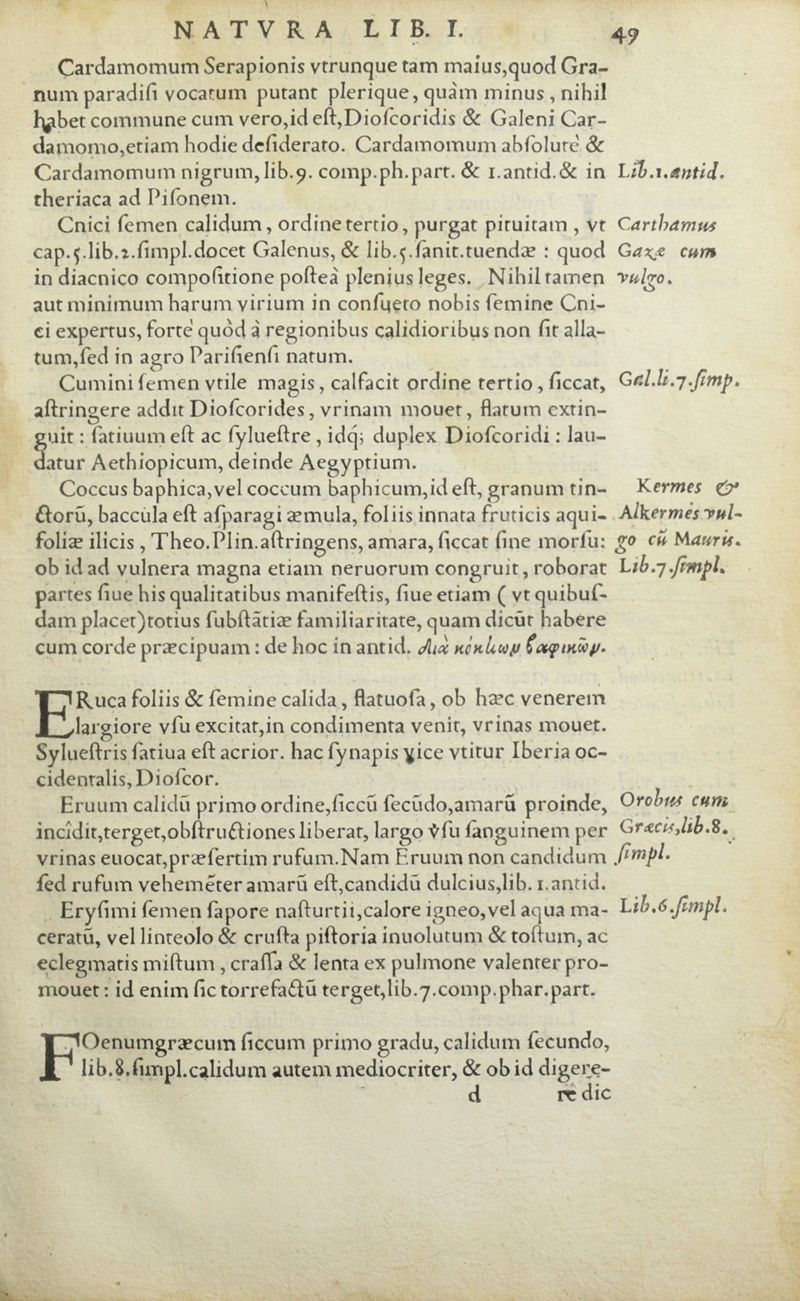 NATVRA LIB. I. 49
Cardamomum Serapionis vtrunque tam maius,quod Gra-
num paradiſi vocatum putant plerique, quàm minus, nihil
habet commune cum vero,id eſt,Dioſcoridis & Galeni Car-
damomo,etiam hodie deſiderato. Cardamomum abſolutè &
Cardamomum nigrum, lib.9. comp.ph.part. & 1.antid.& in Lib.1.antid.
theriaca ad Piſonem.
Cnici ſemen calidum, ordine tertio, purgat pituitam, vt Carthamus
cap.5.lib.2.ſimpl.docet Galenus, & lib.5.ſanit.tuendæ : quod Gazæ cum
in diacnico compoſitione poſteà plenius leges. Nihil tamen vulgo.
aut minimum harum virium in conſueto nobis ſemine Cni-
ci expertus, fortè quòd à regionibus calidioribus non ſit alla-
tum,ſed in agro Pariſienſi natum.
Cumini ſemen vtile magis, calfacit ordine tertio, ſiccat, Gal.li.7.ſimp.
aſtringere addit Dioſcorides, vrinam mouet, flatum extin-
guit : ſatiuum eſt ac ſylueſtre, idq; duplex Dioſcoridi : lau-
datur Aethiopicum, deinde Aegyptium.
Coccus baphica,vel coccum baphicum,id eſt, granum tin- Kermes &
ctorū, baccula eſt aſparagi æmula, foliis innata fruticis aqui- Alkermes vul-
foliæ ilicis, Theo.Plin.aſtringens, amara, ſiccat ſine morſu: go cū Mauris.
ob id ad vulnera magna etiam neruorum congruit, roborat Lib.7.ſimpl.
partes ſiue his qualitatibus manifeſtis, ſiue etiam ( vt quibuſ-
dam placet)totius ſubſtātiæ familiaritate, quam dicūt habere
cum corde præcipuam : de hoc in antid. διὰ κόκκων βαφικῶν.
ERuca foliis & ſemine calida, flatuoſa, ob hæc venerem
largiore vſu excitat,in condimenta venit, vrinas mouet.
Sylueſtris ſatiua eſt acrior. hac ſynapis vice vtitur Iberia oc-
cidentalis, Dioſcor.
Eruum calidū primo ordine,ſiccū ſecūdo,amarū proinde, Orobus cum
incîdit,terget,obſtructiones liberat, largo vſu ſanguinem per Græcis,lib.8.
vrinas euocat,præſertim rufum.Nam Eruum non candidum ſimpl.
ſed rufum vehemēter amarū eſt,candidū dulcius,lib. 1.antid.
Eryſimi ſemen ſapore naſturtii,calore igneo,vel aqua ma- Lib.6.ſimpl.
ceratū, vel linteolo & cruſta piſtoria inuolutum & toſtum, ac
eclegmatis miſtum, craſſa & lenta ex pulmone valenter pro-
mouet : id enim ſic torrefactū terget,lib.7.comp.phar.part.
FOenumgræcum ſiccum primo gradu, calidum ſecundo,
lib.8.ſimpl.calidum autem mediocriter, & ob id digere-
d re dic